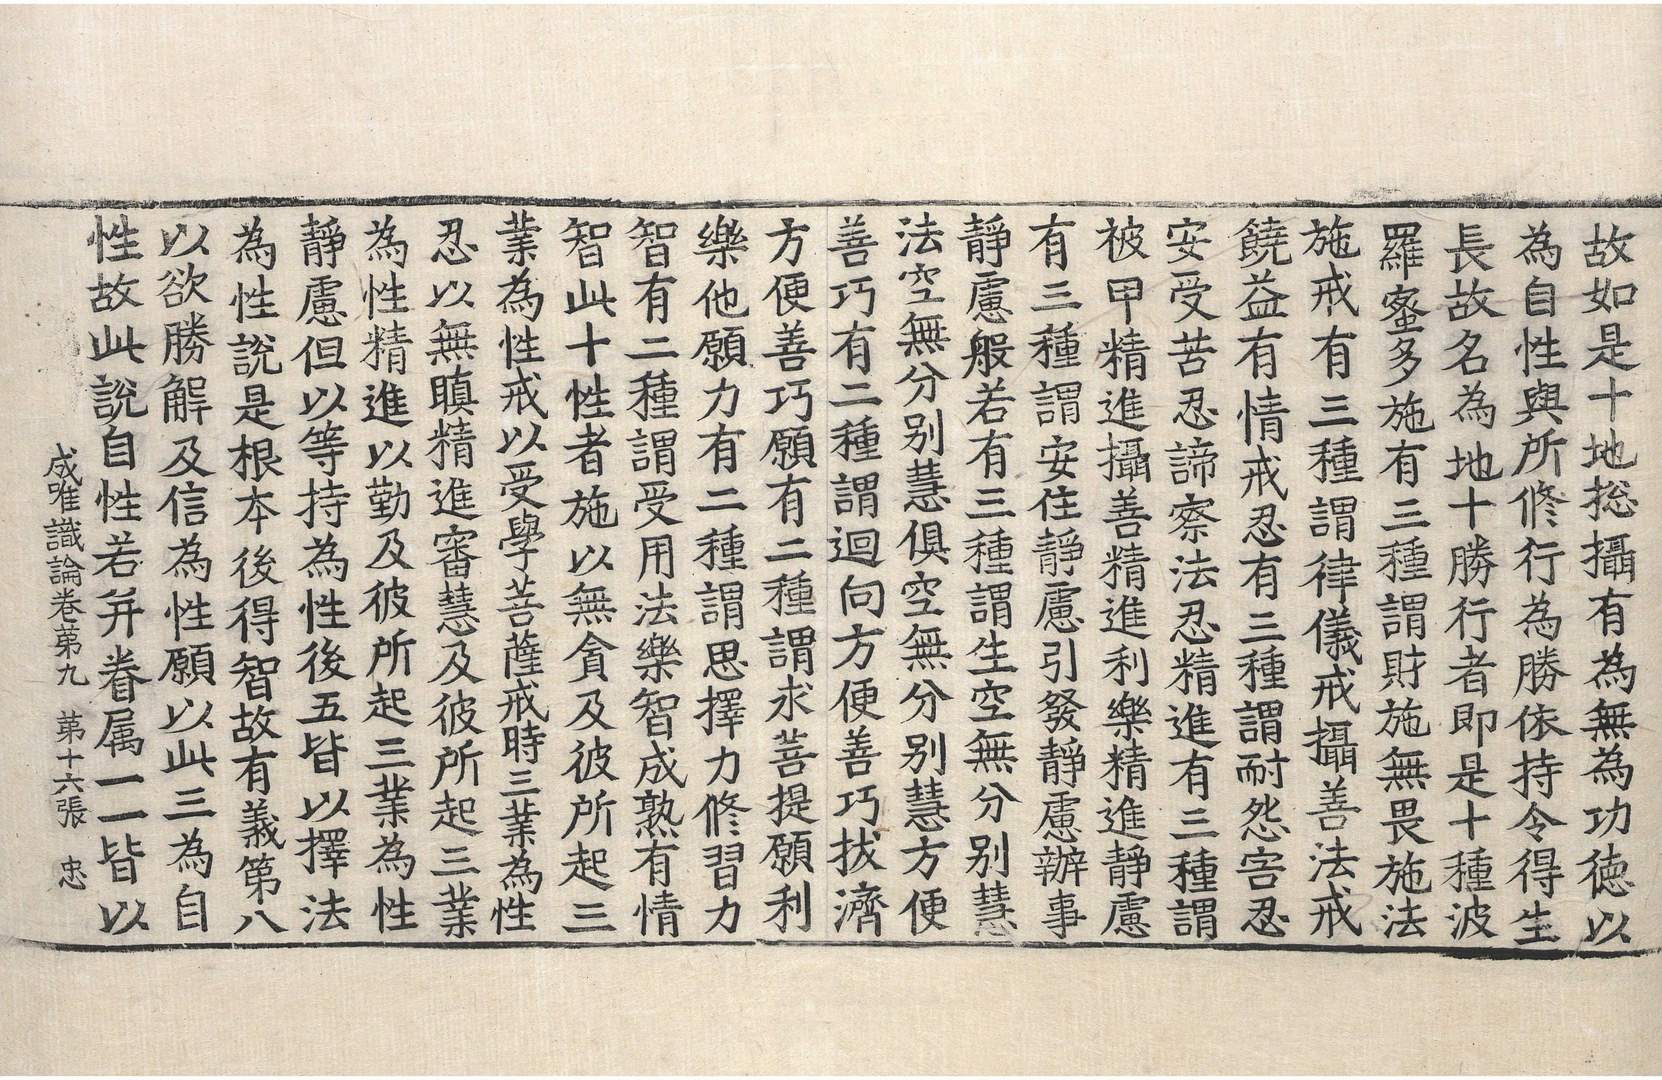 故如是十地㧾攝有為無為功徳以
為自性與所修行為勝依持令得生
長故名為地十勝行者即是十種波
羅蜜多施有三種謂財施無畏施法
施戒有三種謂律儀戒攝善法戒
饒益有情戒忍有三種謂耐怨害忍
安受苦忍諦察法忍精進有三種謂
被甲精進攝善精進利樂精進靜慮
有三種謂安住靜慮引發靜慮辦事
靜慮般若有三種謂生空無分别慧
法空無分别慧俱空無分别慧方便
善巧有二種謂迴向方便善巧拔濟
方便善巧願有二種謂求菩提願利
樂他願力有二種謂思擇力修習力
智有二種謂受用法樂智成熟有情
智此十性者施以無貪及彼所起三
業為性戒以受學菩薩戒時三業為性
忍以無瞋精進審慧及彼所起三業
為性精進以勤及彼所起三業為性
靜慮但以等持為性後五皆以擇法
為性說是根本後得智故有義第八
以欲勝解及信為性願以此三為自
性故此說自性若并眷属一一皆以
成唯識論卷苐九 苐十六張 忠